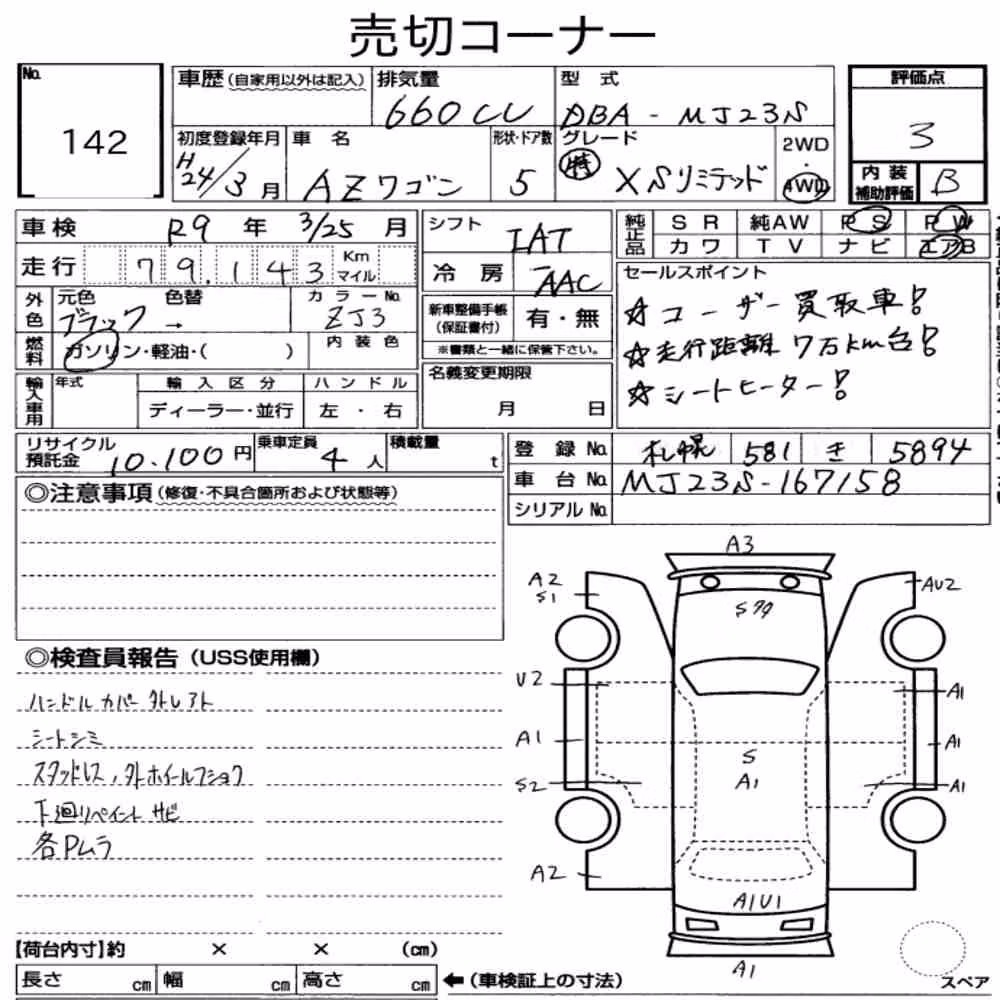 売切コーナー
No. 142
車歴(自家用以外は記入) 排気量 660CC 型式 DBA-MJ23S
初度登録年月 H24/3月 車名 AZワゴン 形状・ドア数 5 グレード 特 XSリミテッド 2WD・4WD
評価点 3
内装補助評価 B
車検 R9年 3/25月
走行 79,143 Km マイル
シフト IAT
冷房 AAC
純正品 SR 純AW PS PW
カワ TV ナビ エアB
外色 元色 ブラック 色替 → カラーNo. ZJ3
燃料 ガソリン・軽油・( ) 内装色
新車整備手帳(保証書付) 有・無
※書類と一緒に保管下さい。
セールスポイント
☆ユーザー買取車!
☆走行距離7万km台!
☆シートヒーター!
輸入車用 年式 輸入区分 ディーラー・並行 ハンドル 左・右
名義変更期限 月 日
リサイクル預託金 10.100円 乗車定員 4人 積載量 t
登録No. 札幌 581 き 5894
車台No. MJ23S-167158
シリアルNo.
◎注意事項(修復・不具合箇所および状態等)
◎検査員報告(USS使用欄)
ハンドルカバー外レアト
シートシミ
スタッドレス,外ホイールフショク
下廻リペイントサビ
各Pムラ
A3
A2
S1
AU2
S79
U2
A1
A1
A1
S
A1
S2
A1
A2
A1U1
A1
【荷台内寸】約 × × (cm)
長さ cm 幅 cm 高さ cm ←(車検証上の寸法)
スペア